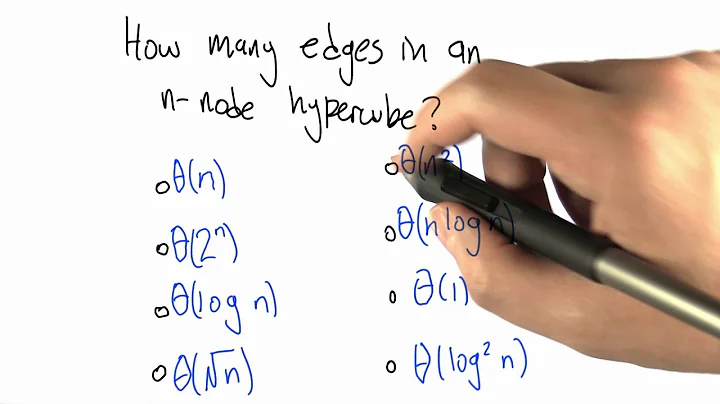 How many edges in an
n-node hypercube?
Θ(n)
Θ(2ⁿ)
Θ(log n)
Θ(√n)
Θ(n²)
Θ(n log n)
Θ(1)
Θ(log² n)